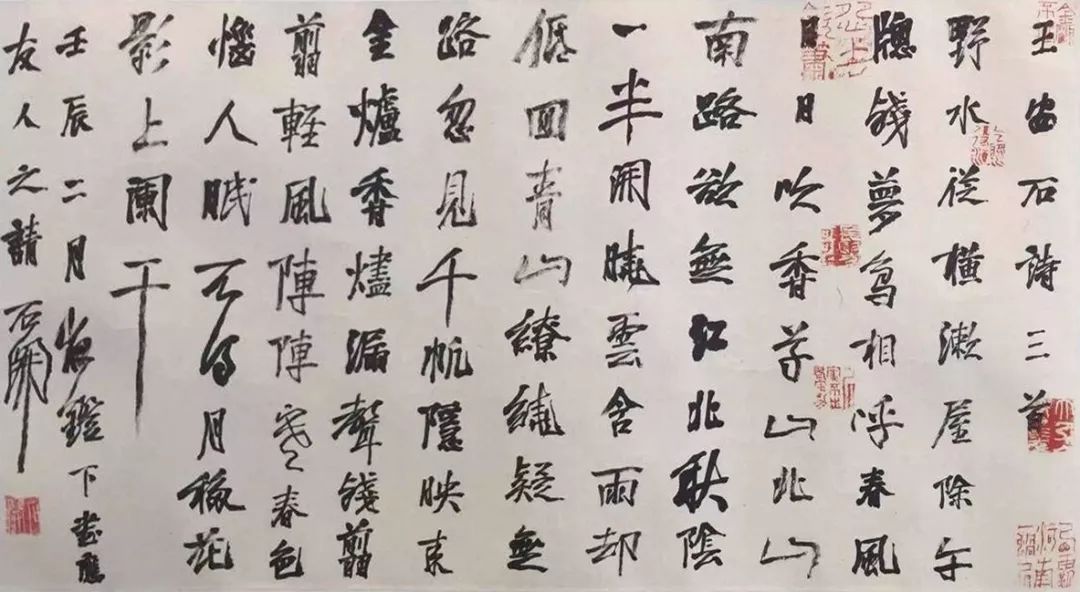 王安石詩三首
野水從橫漱屋除午
牕殘夢鳥相呼春風
日日吹香草山北山
南路欲無江北秋陰
一半開曉雲含雨却
低回青山繚繞疑無
路忽見千帆隱映來
金爐香燼漏聲殘翦
翦輕風陣陣寒春色
惱人眠不得月移花
影上闌干
壬辰二月夜鐙下書應
友人之請 石開